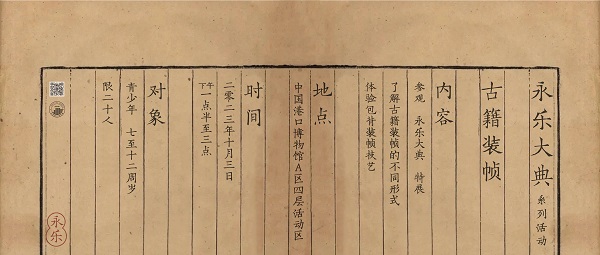 永乐大典 系列活动
古籍装帧
内容
参观 永乐大典 特展
了解古籍装帧的不同形式
体验包背装帧技艺
地点
中国港口博物馆A区四层活动区
时间
二零二三年十月三日
下午一点半至三点
对象
青少年 七至十二周岁
限二十人
永乐